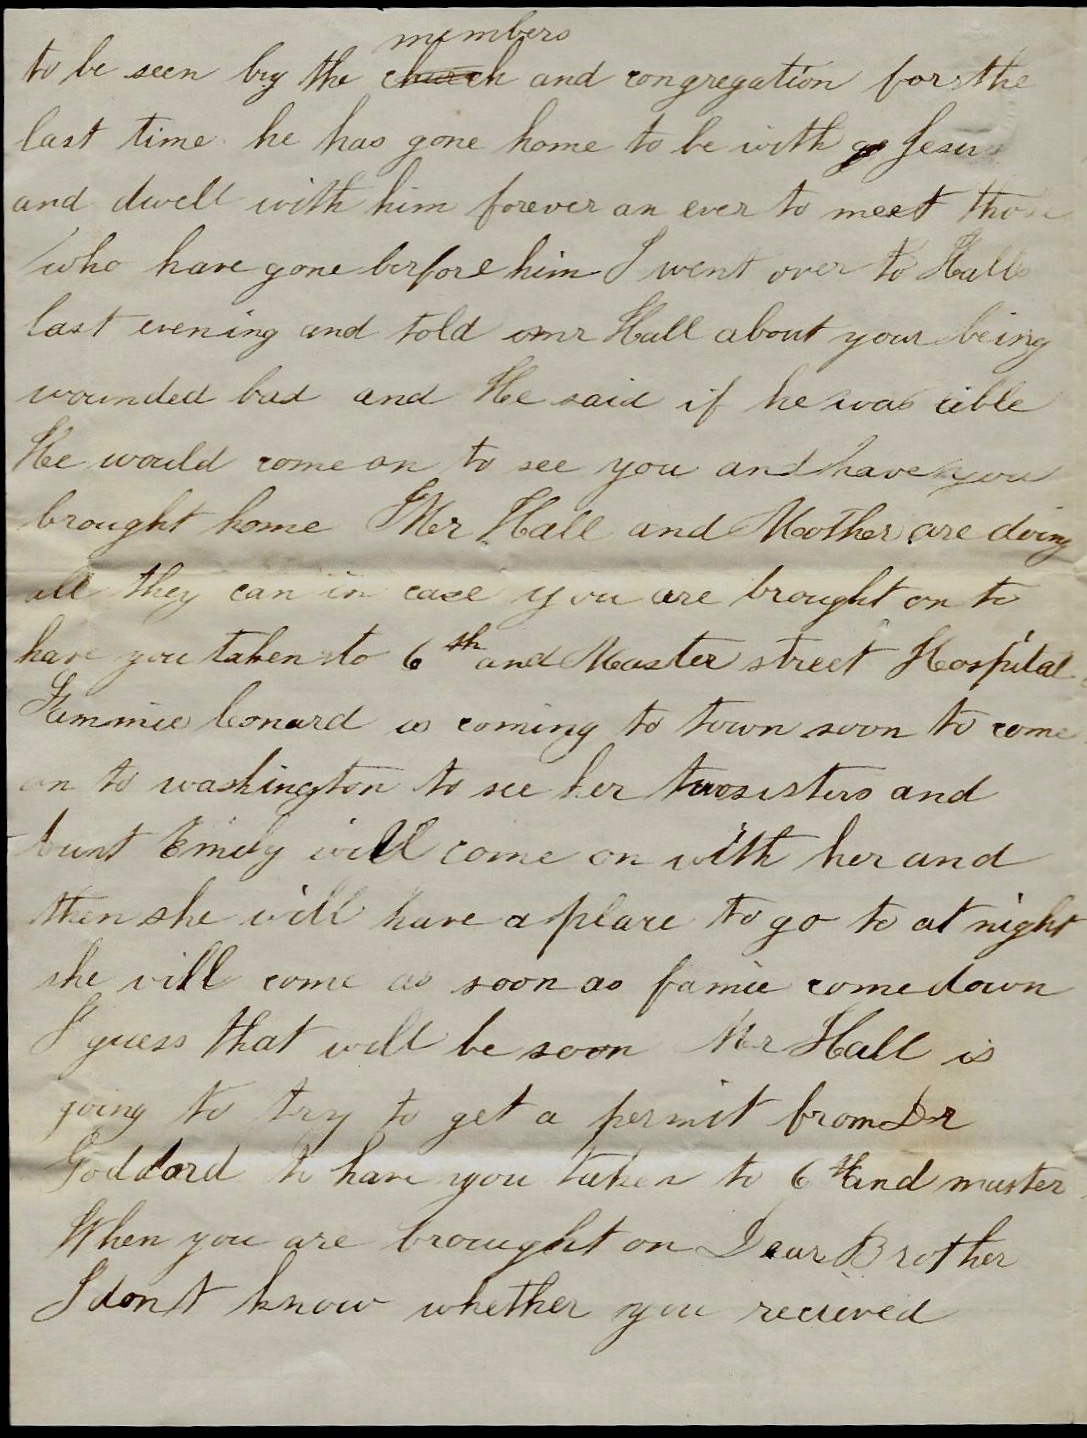 members
to be seen by the church and congregation for the
last time he has gone home to be with Jesus
and dwell with him forever an ever to meet those
who have gone berfore him I went over to Halls
last evening and told mr Hall about your being
wounded bad and He said if he was able
He would come on to see you and have you
brought home Mr Hall and Mother are doing
all they can in case you are brought on to
have you taken to 6th and Master street Hospital
Fammie Conard is coming to town soon to come
on to washington to see her two sisters and
Aunt Emily will come on with her and
then she will have a place to go to at night
she will come as soon as famie come down
I guess that will be soon Mr Hall is
going to try to get a permit from Dr
Goddard to have you taken to 6th and master
When you are brought on Dear Brother
I dont know whether you recieved